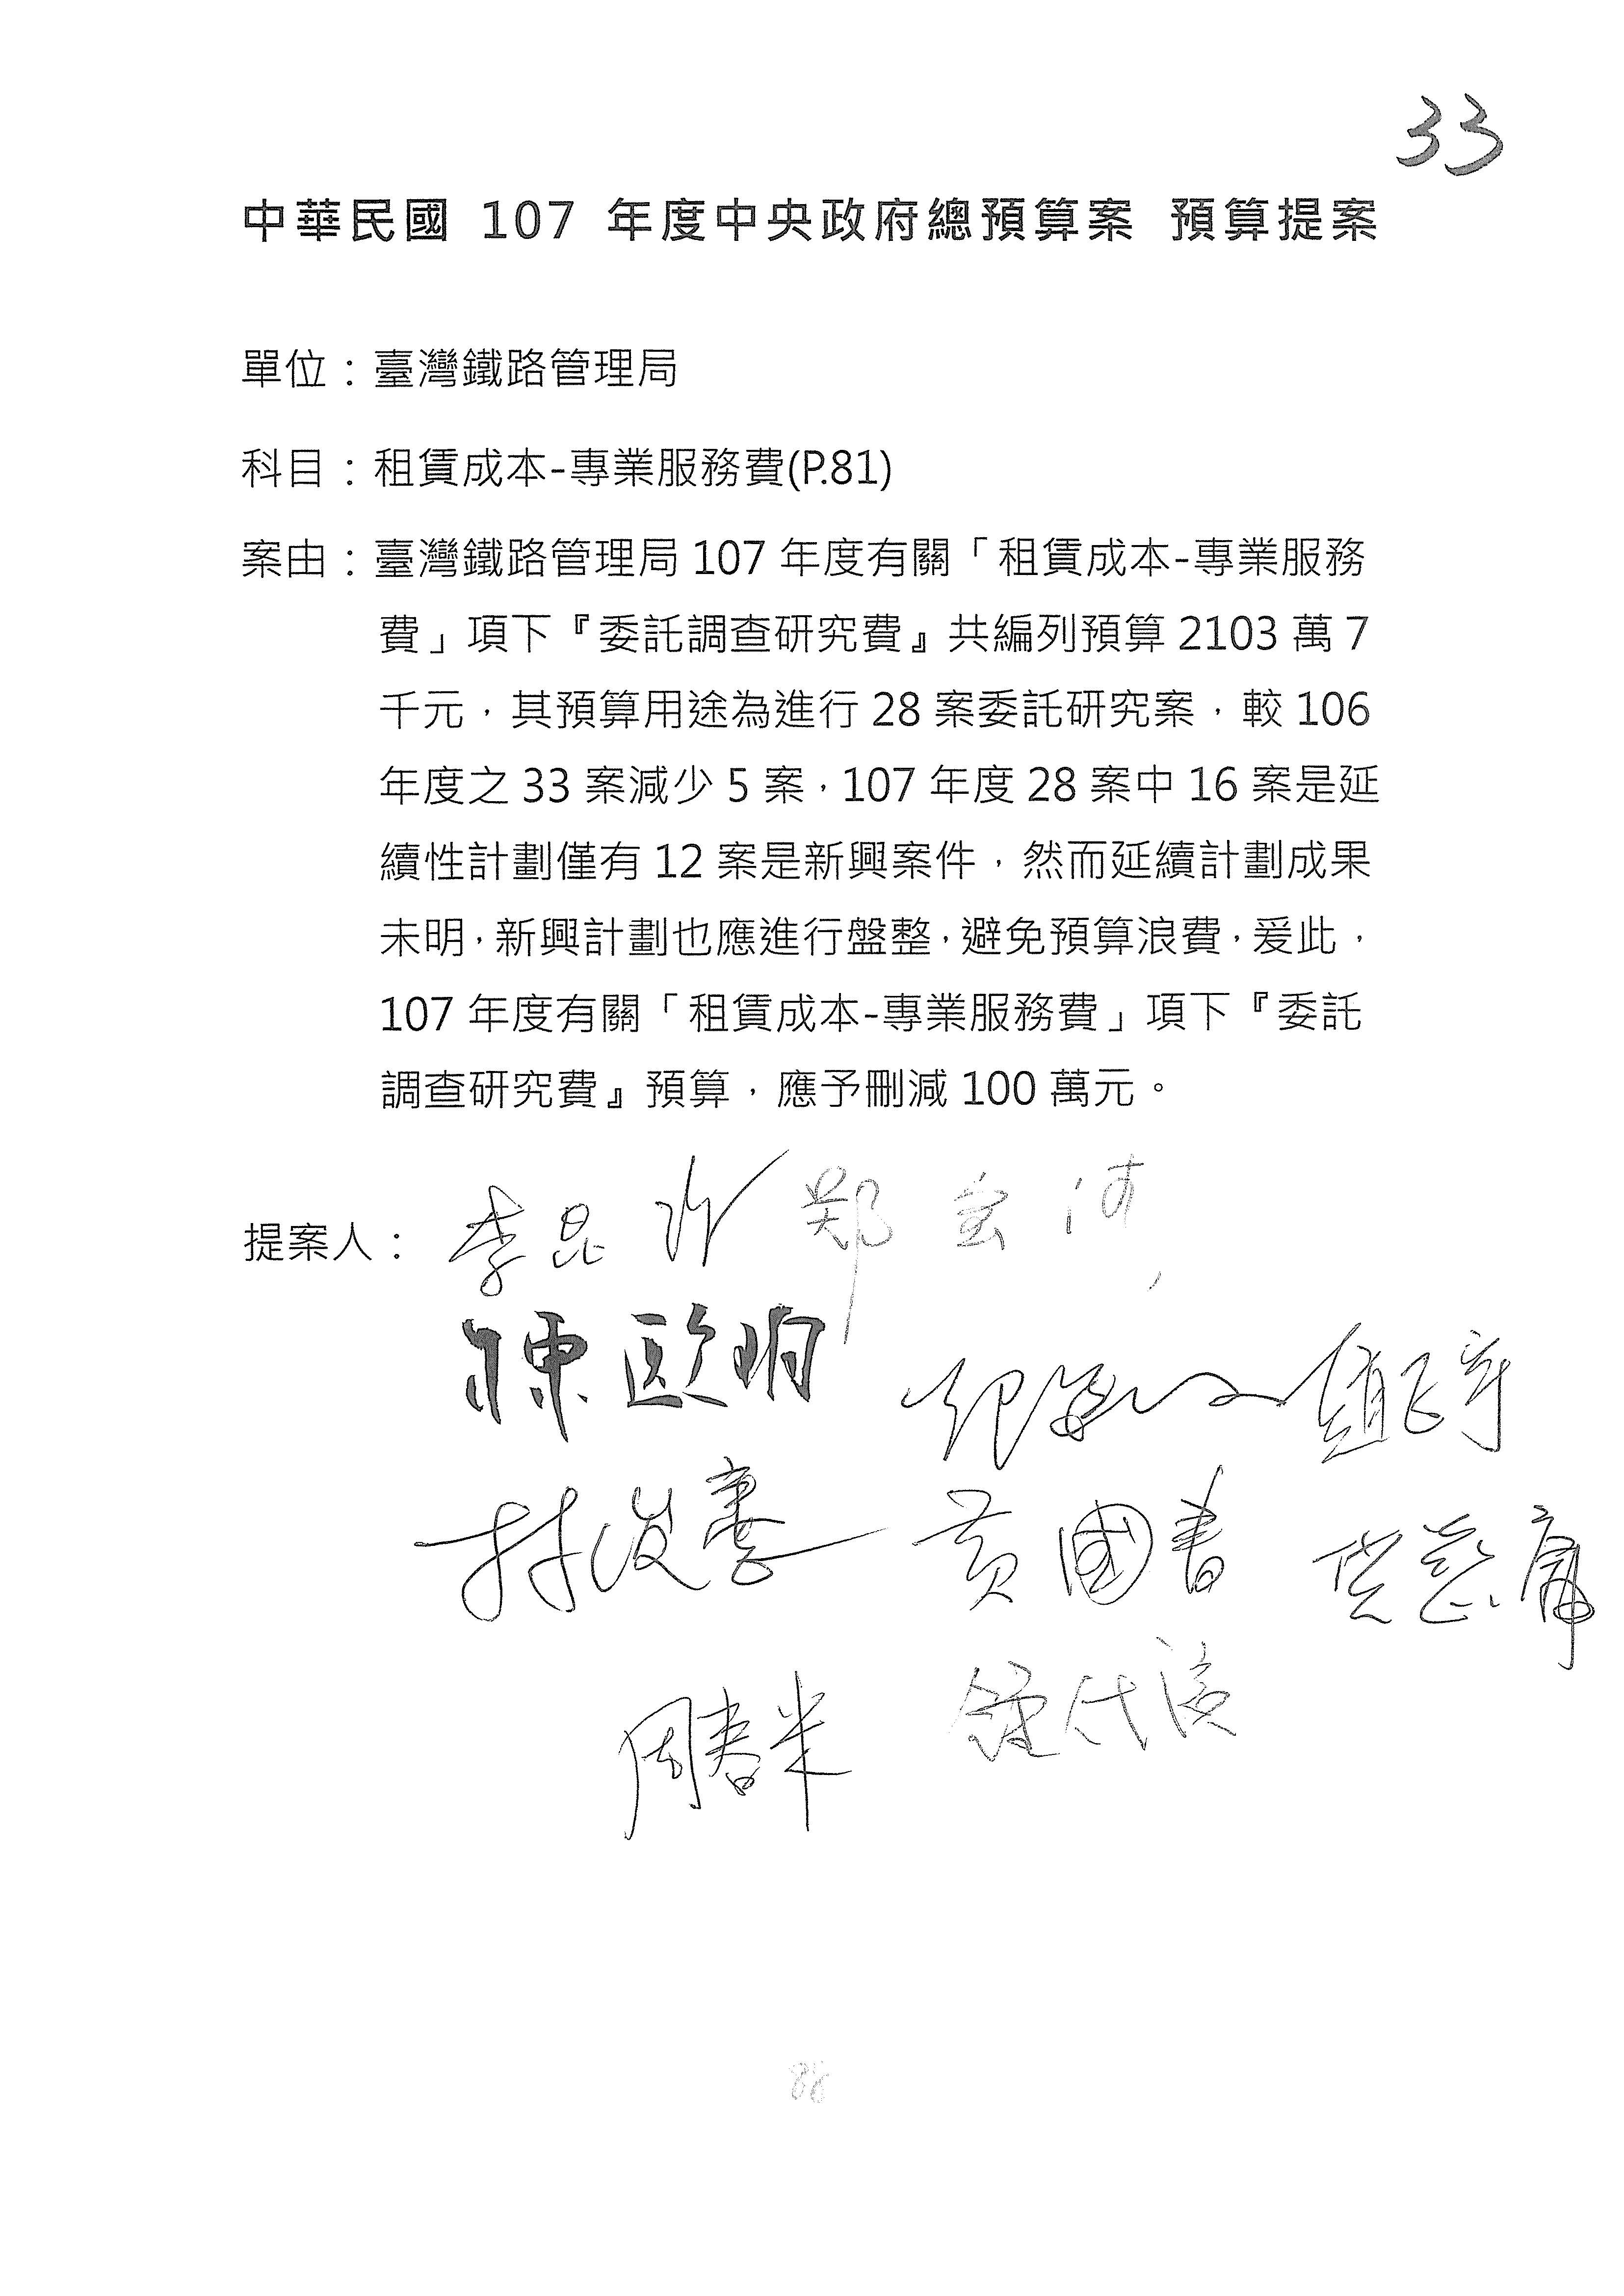 33
中華民國 107 年度中央政府總預算案 預算提案
單位：臺灣鐵路管理局
科目：租賃成本-專業服務費(P.81)
案由：臺灣鐵路管理局 107 年度有關「租賃成本-專業服務
費」項下『委託調查研究費』共編列預算 2103 萬 7
千元，其預算用途為進行 28 案委託研究案，較 106
年度之 33 案減少 5 案，107 年度 28 案中 16 案是延
續性計劃僅有 12 案是新興案件，然而延續計劃成果
未明，新興計劃也應進行盤整，避免預算浪費，爰此，
107 年度有關「租賃成本-專業服務費」項下『委託
調查研究費』預算，應予刪減 100 萬元。
提案人：李昆 鄭
陳歐珀
林俊憲 黃國書
周春米
88